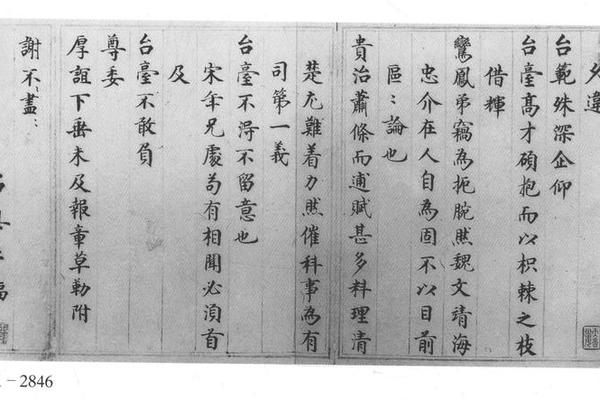 違
台範殊深企仰
台臺高才碩抱而以枳棘之枝
借輝
鸞鳳弟竊為扼腕然魏文靖海
忠介在人自為固不以目前
區〻論也
貴治蕭條而逋賦甚多料理清
楚尤難着力然催科事為有
司第一義
台臺不得不留意也
宋年兄處苟有相聞必須首
及
台臺不敢負
尊委
厚誼下垂未及報章草勒附
謝不〻盡〻
-2846